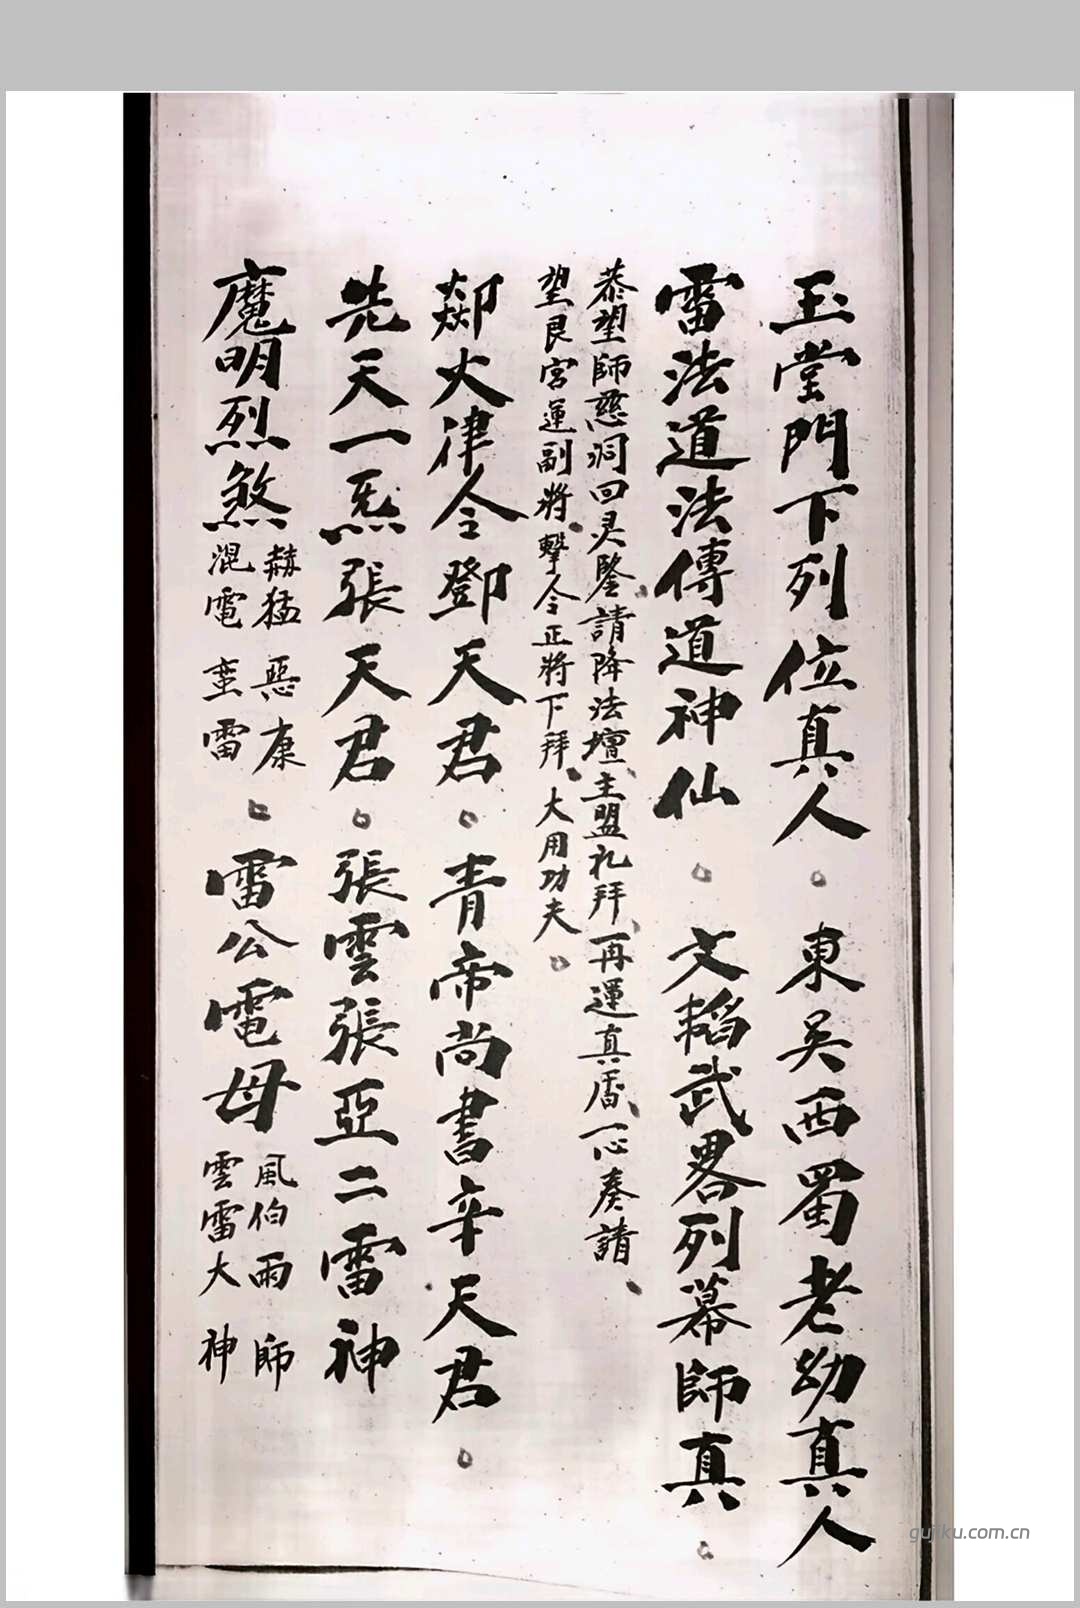 玉堂門下列位真人。東吴西蜀老幼真人
雷法道法傳道神仙。文韜武畧列幕師真。
恭望師慈洞回灵鑒、請降法壇、主盟礼拜、再運真香、一心奏請、
望艮宮運副將、擊令正將下拜、大用功夫。
欻火律令鄧天君。青帝尚書辛天君。
先天一炁張天君。張雲張亞二雷神
魔明烈煞赫猛惡康
混電蛮雷。雷公電母風伯雨師
雲雷大神
gujiku.com.cn